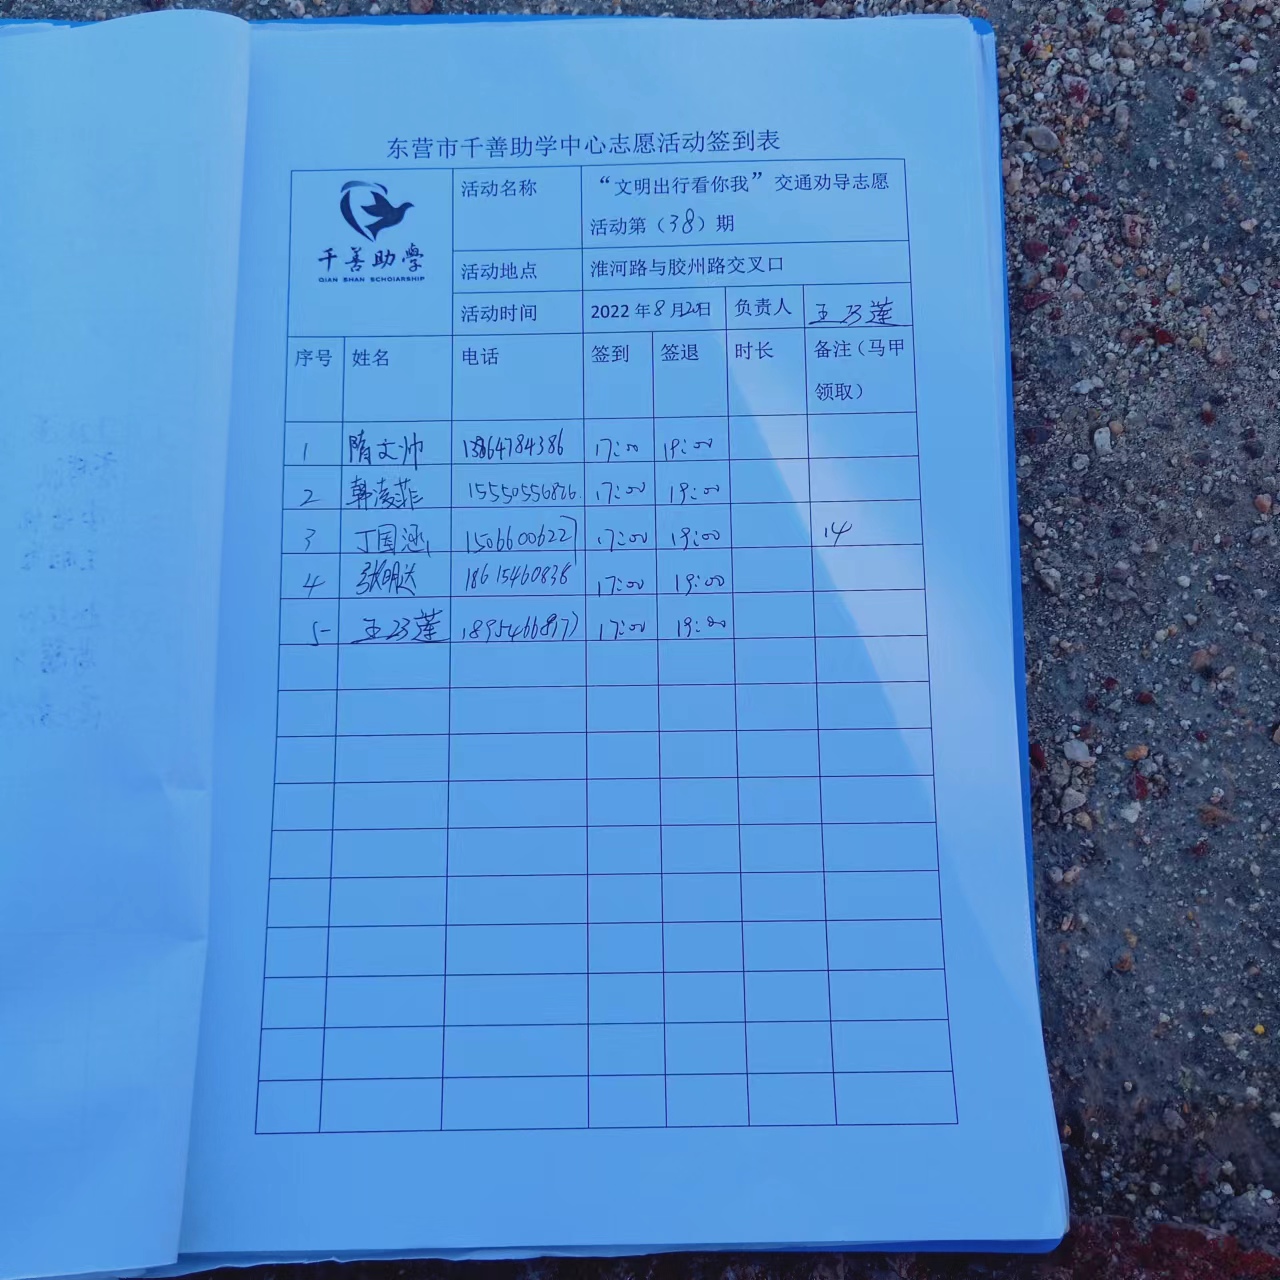 东营市千善助学中心志愿活动签到表
千善助學
QIAN SHAN SCHOLARSHIP
活动名称 “文明出行看你我”交通劝导志愿
活动第（38）期
活动地点 淮河路与胶州路交叉口
活动时间 2022年8月20日 负责人 王乃莲
序号 姓名 电话 签到 签退 时长 备注（马甲
领取）
1 隋文帅 13864784386 17:00 19:00
2 韩凌菲 15550556826 17:00 19:00
3 丁国涵 15066006227 17:00 19:00 14
4 张明达 18615460838 17:00 19:00
5 王乃莲 18954668977 17:00 19:00